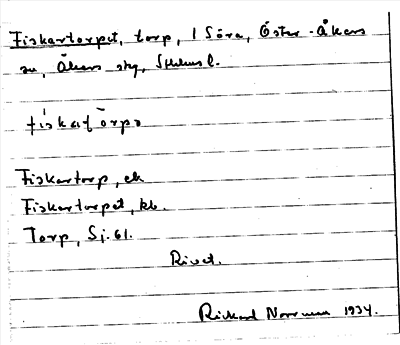 Fiskartorpet, torp, 1 Söra, Öster-Åkers
sn, Åkers skg, Sthlms l.
fiskaṭorpə
Fiskartorp, ek
Fiskartorpet, kb.
Torp, Sj. 61.
Rivet.
Rickard Norrman 1934.